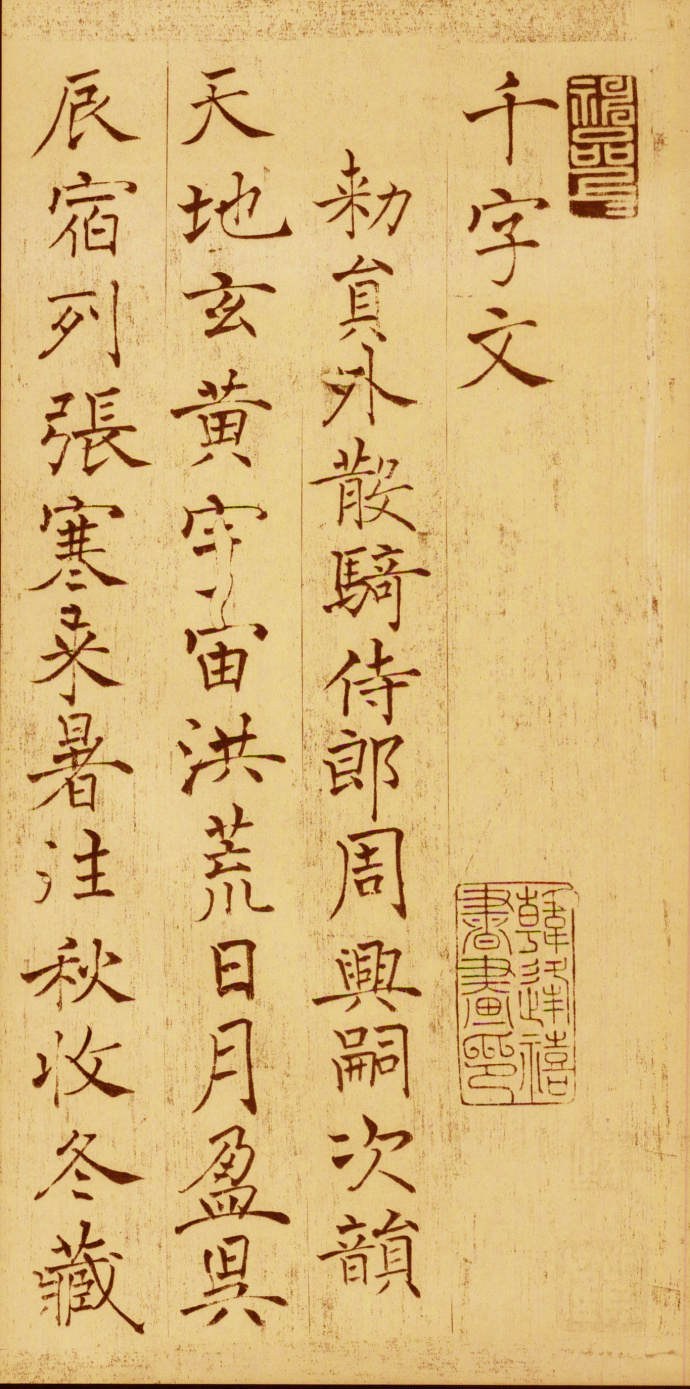 千字文
勑貟外散騎侍郎周興嗣次韻
天地玄黄宇宙洪荒日月盈昃
辰宿列張寒来暑往秋收冬藏
神品
韓逢禧書畫印